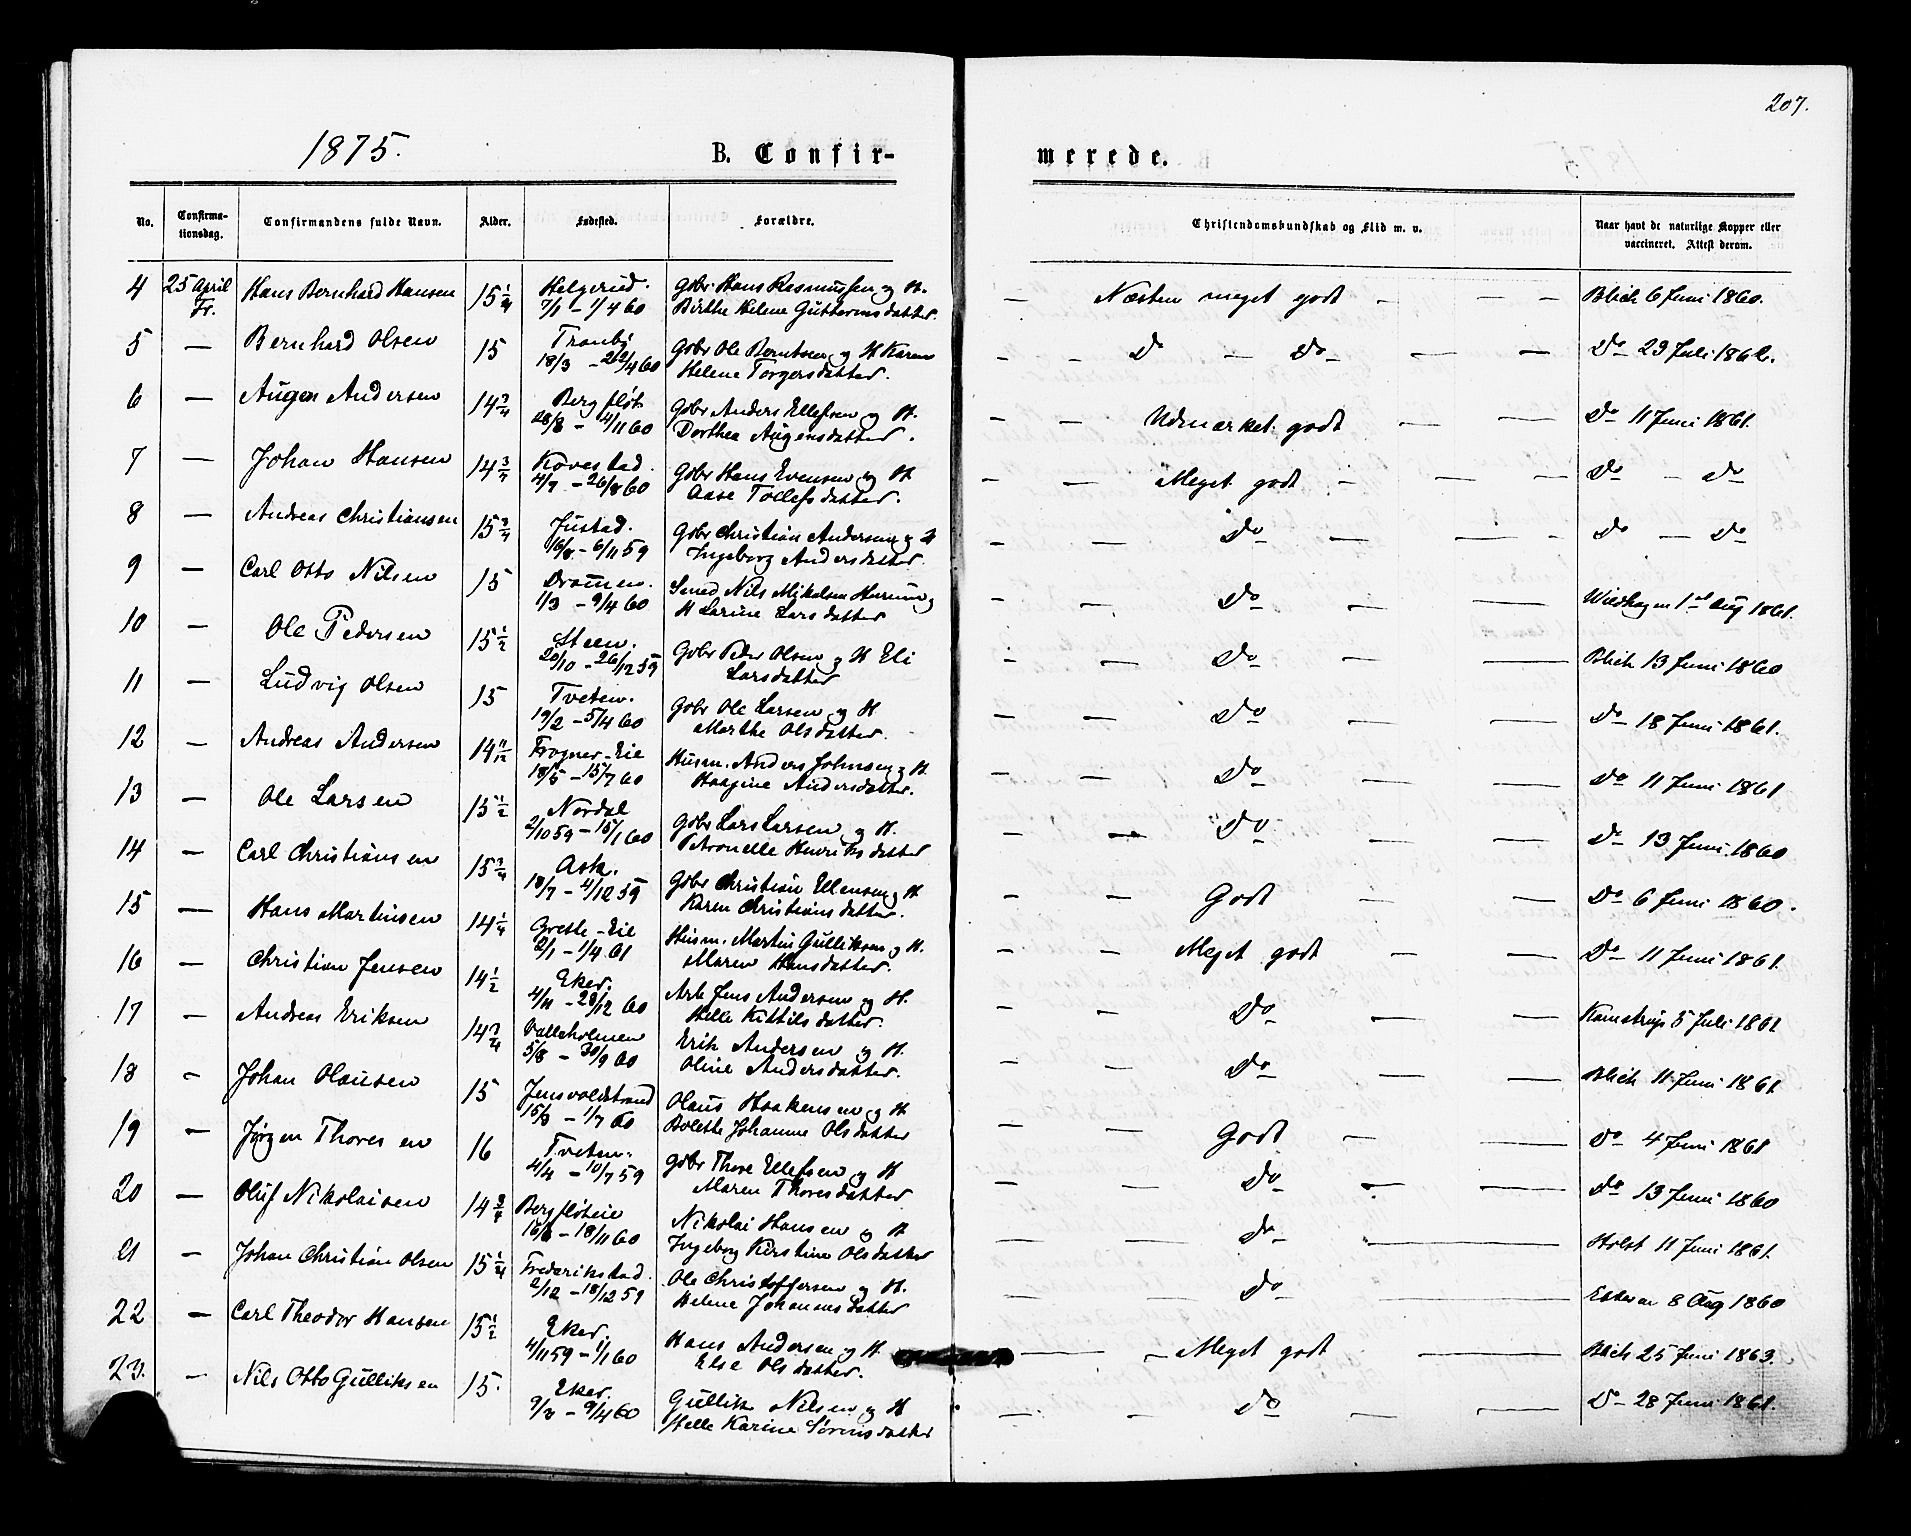 207.
1875.
B. Confir-
merede.
No. Confirma-tionsdag. Confirmandens fulde Navn. Alder. Fødested. Forældre. Christendomskundskab og Flid m. v. Naar havt de naturlige Kopper eller vaccineret. Attest derom.
4 25 April Fr. Hans Bernhard Hansen 15 1/4 Helgerud. Gdbr. Hans Rasmussen og H. — Næsten meget godt — — — Blich 6 Juni 1860.
7/1 – 1/4 60 Birthe Helene Guttormsdatter.
5 — Bernhard Olsen 15 Tranby Gdbr Ole Berntsen og H Karen — — Do — Do — — Do 29 Juli 1862.
18/3 – 22/4 60 Helene Torgersdatter.
6 — Augen Andersen 14 3/4 Berg fløt Gdbr Anders Ellefsen og H. — — Udmærket godt — — Do 11 Juni 1861.
28/8 – 4/11 60 Dorthea Augensdatter.
7 — Johan Hansen 14 3/4 Kovestad. Gdbr Hans Evensen og H — — Meget godt — — — Do — Do
4/7 – 26/8 60 Aase Tollefsdatter.
8 — Andreas Christiansen 15 3/4 Justad. Gdbr Christian Andersen og H — — Do — — Do — Do
16/8 – 6/11 59 Ingeborg Andersdatter.
9 — Carl Otto Nilsen 15 Dramen. Smed Nils Mikelsen Hurum og — — Do — — Wiedhagen 1st Aug 1861.
1/3 – 9/4 60 H Larine Larsdatter
10 — Ole Pedersen 15 1/2 Steen. Gdbr Peder Olsen og H Eli — — Do — — Blich 13 Juni 1860
20/10 – 26/12 59 Larsdatter
11 — Ludvig Olsen 15 Tveten. Gdbr Ole Larsen og H — — Do — — Do 18 Juni 1861.
19/2 – 5/4 60 Marthe Olsdatter.
12 — Andreas Andersen 14 11/12 Frogner-Eie Husm. Anders Johnsen og H. — — Do — — Do 11 Juni 1861
18/5 – 15/7 60 Haagine Andersdatter.
13 — Ole Larsen 15 1/2 Nordal Gdbr Lars Larsen og H. — — Do — — Do 13 Juni 1860
2/10 59 – 15/1 60 Petronelle Henriksdatter
14 — Carl Christiansen 15 3/4 Ask. Gdbr Christian Ellensen og H. — — Godt — — Do 6 Juni 1860.
18/7 – 4/12 59 Karen Christiansdatter.
15 — Hans Martinsen 14 1/4 Grette-Eie Husm. Martin Gulliksen og H. — — Meget godt — — Do 11 Juni 1861.
2/1 – 1/4 61 Maren Hansdatter.
16 — Christian Jensen 14 1/2 Eker. Arb Jens Andersen og H. — — Do — — Kamstrup 5 Juli 1861
4/11 – 28/12 60 Helle Kittilsdatter.
17 — Andreas Eriksen 14 3/4 Valleholmen Erik Andersen og H. — — Do — — Blich 11 Juni 1861.
5/8 – 30/9 60 Oline Andersdatter.
18 — Johan Olausen 15 Jensvoldstrand Olaus Haakensen og H — — Godt — — Do 4 Juni 1861
15/3 – 1/7 60 Bolette Johanne Olsdatter
19 — Jørgen Thoresen 16 Tveten. Gdbr Thore Ellefsen og H — — Do — — Do 13 Juni 1860
4/4 – 10/7 59 Maren Thoresdatter.
20 — Oluf Nikolaisen 14 3/4 Bergfløteie Nikolai Hansen og H — — Do — Holst 11 Juni 1861.
16/8 – 18/11 60 Ingeborg Kirstine Olsdatter
21 — Johan Christian Olsen 15 1/4 Frederikstad. Ole Christoffersen og H. — — Do — — Esteren 8 Aug 1860
2/12 – 18/12 59 Helene Johannesdatter
22 — Carl Theodor Hansen 15 1/2 Eker. Hans Andersen og H. — — Meget godt — Blich 25 Juni 1863.
4/11 59 – 1/1 60 Else Olsdatter.
23. — Nils Otto Gulliksen 15. Eker. Gullik Nilsen og H — — Do — — Do 28 Juni 1861.
7/3 – 9/4 60 Helle Karine Sørensdatter